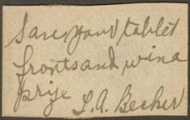 Save your tablet
fronts and win a
prize
L. A. Becker